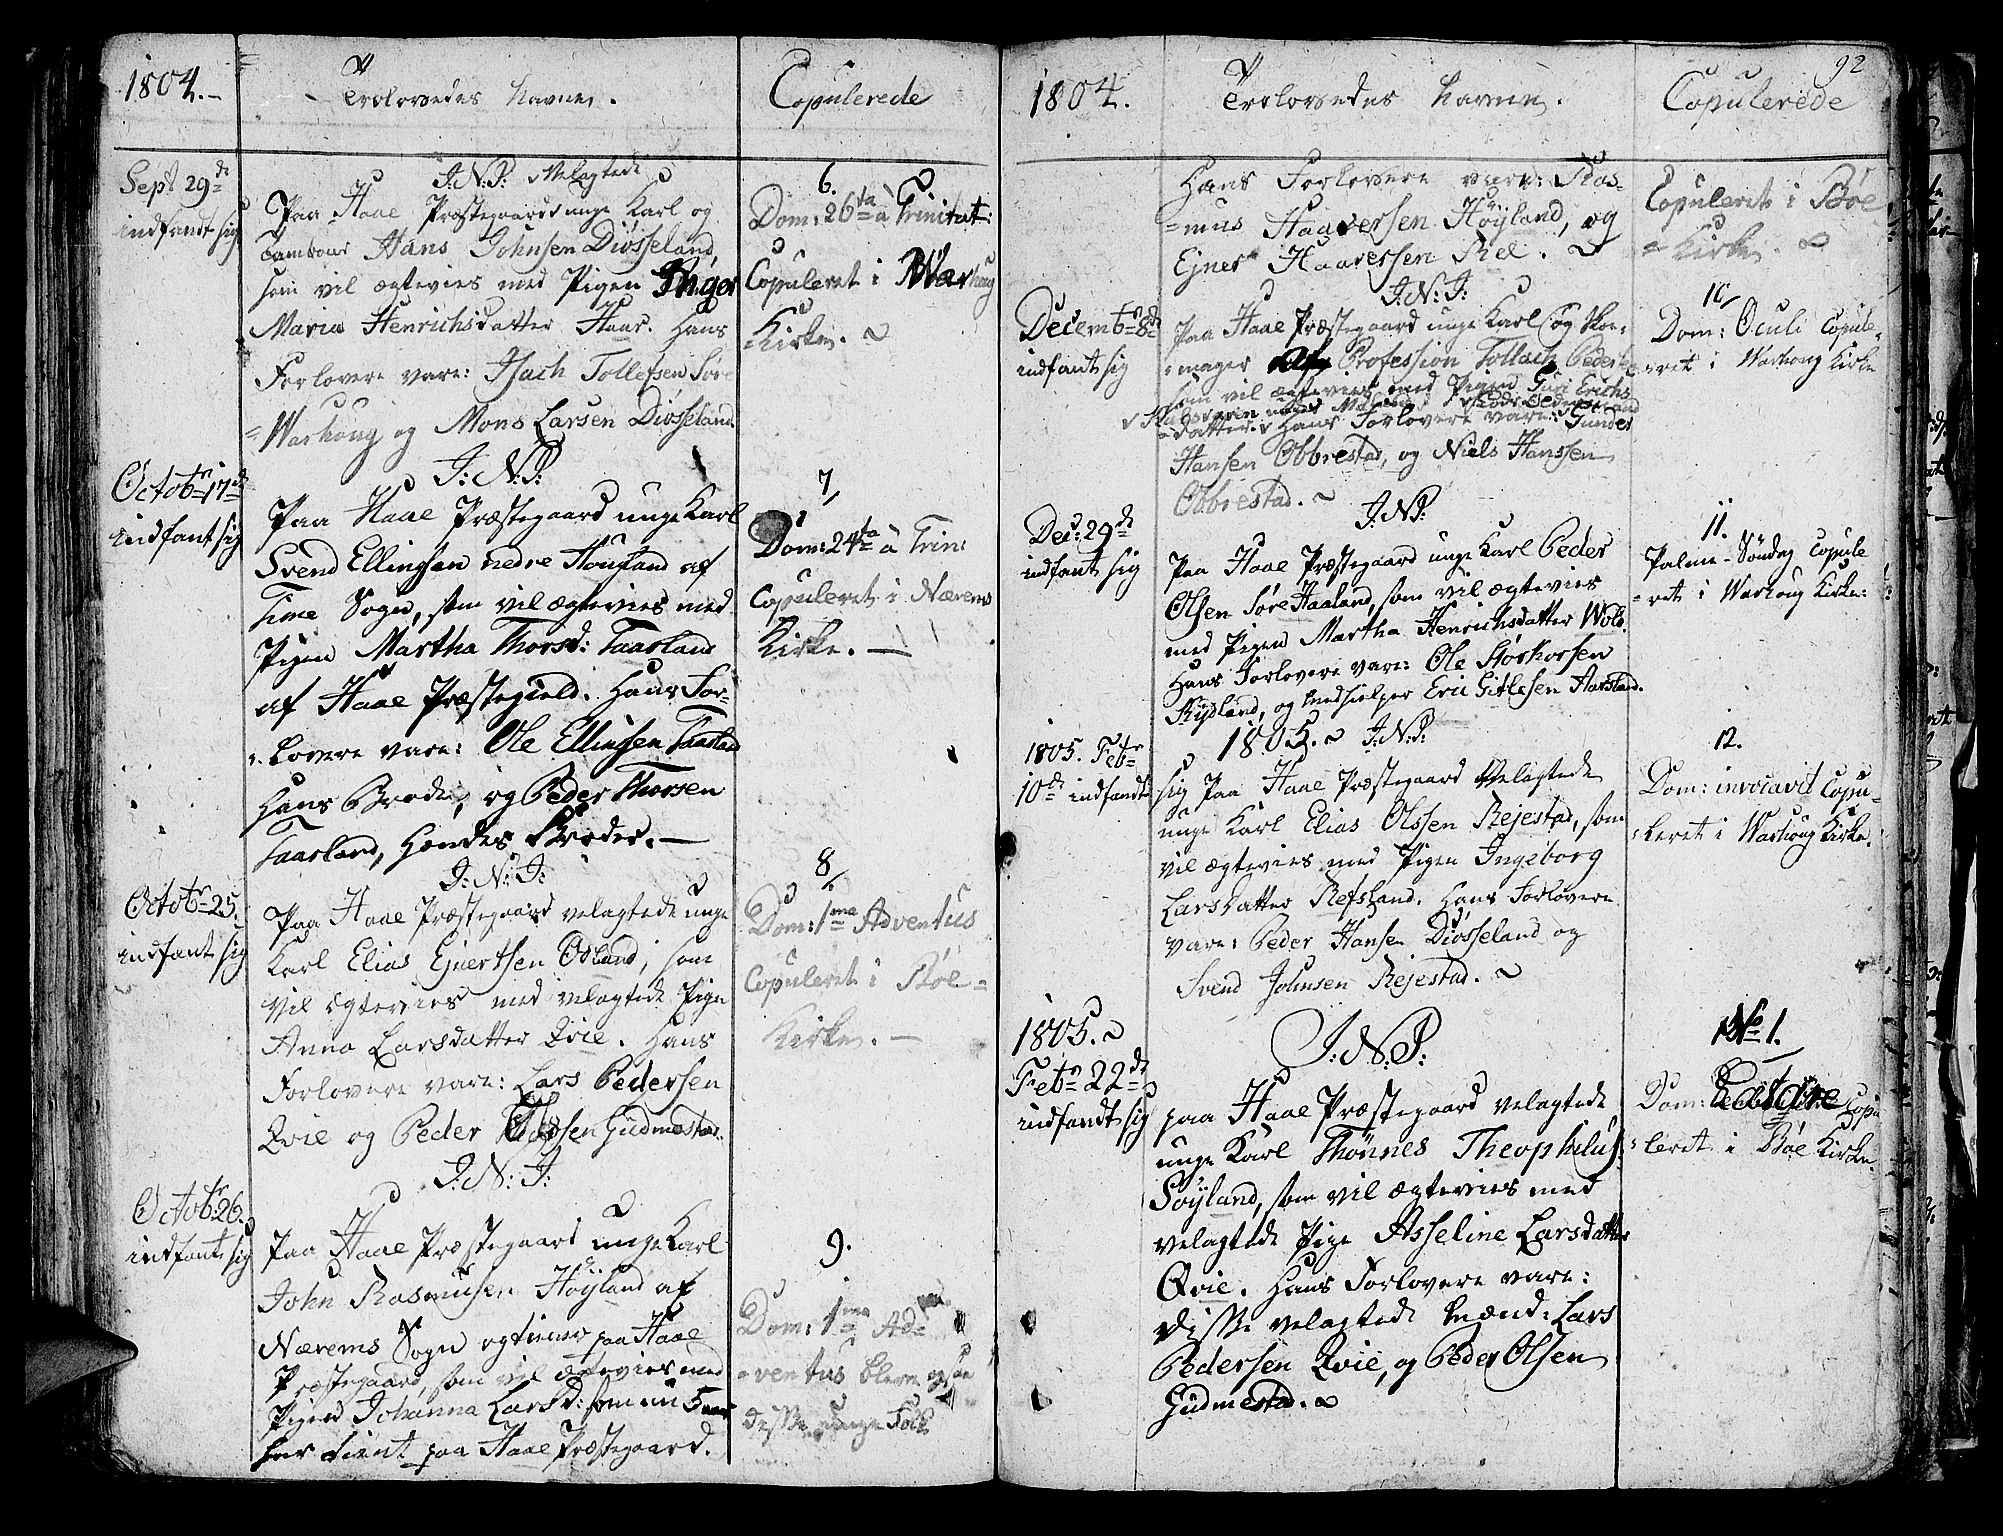 1804.
Trolovedes Navne.
Copulerede
Sept 29de
indfandt sig
J.N.J: Velagtede
Paa Haae Præstegaard unge Karl og
Tambour Hans Johnsen Diösseland,
som vil ægtevies med Pigen
Maria Henrichsdatter Haar. Hans
Forlovere vare: Isach Tollefsen Söre
Warhoug og Mons Larsen Diösseland.
6.
Dom: 26ta à Trinitat:
Copuleret i Warhoug
Kirke.
Octobr 17de
indfant sig
J:N.J:
Paa Haae Præstegaard unge Karl
Svend Ellingsen nedre Houland af
Time Sogn, som vil ægtevies med
Pigen Martha Thorsd: Taarland
af Haae Præstegield. Hans For-
lovere vare: Ole Ellinsen Taarland
Hans Broder, og Peder Thorsen
Taarland, Hendes Broder.
7
Dom: 24ta à Trin:
Copuleret i Nærems
Kirke.
Octobr 25.
indfant sig
J:N:J:
Paa Haae Præstegaard velagtede unge
Karl Elias Ejvertsen Odland, som
vil ægtevies med velagtede Pige
Anna Larsdatter Qvie. Hans
Forlovere vare: Lars Pedersen
Qvie og Peder Olssen Gudmestad.
8
Dom: 1ma Adventus
Copuleret i Böe
Kirke.
Octobr 26.
indfant sig
J.N.J:
Paa Haae Præstegaard unge Karl
John Rasmusen Höyland af
Nærems Sogn og tiener paa Haae
Præstegaard, som vil ægtevies med
Pigen Johanna Larsd: som nu 5 aar
har tient paa Haae Præstegaard.
9.
Dom: 1ma Ad-
ventus bleve ogsaa
disse unge Folk
92
1804.
Trolovedes Navne.
Copulerede
Hans Forlovere vare: Ras-
mus Haaversen Höyland, og
Ejner Haaverssen Ree.
Copuleret i Böe
Kirke.
Decembr 8de
indfant sig
J.N:J:
Paa Haae Præstegaard unge Karl og Skoe-
mager Profession Tollach Peders
som vil ægtevies med Pigen Guri Erichs
datter. Hans Forlovere vare: Gunder
Hansen Obbrestad, og Niels Hanssen
Obbrestad.
10
Dom: Oculi Copule-
ret i Warhoug Kirke
Decr 29de
indfant sig
J.N.J:
Paa Haae Præstegaard unge Karl Peder
Olsen Söre Haaland, som vil ægtevies
med Pigen Martha Henrichsdatter Wold.
Hans Forlovere vare: Ole Storkorsen
Rydland, og Medhielper Eric Gitlesen Aarsland.
11.
Palme-Söndag Copule
ret i Warhoug Kirke:
1805. Febr
10de indfandt
1805. J.N.J:
sig Paa Haae Præstegaard Velagtede
unge Karl Elias Olssen Rejestad, som
vil ægtevies med Pigen Ingeborg
Larsdatter Refsland. Hans Forlovere
vare: Peder Hansen Diösseland og
Svend Johnsen Rejestad.
12.
Dom: invocavit Copu-
leret i Warhoug Kirke.
1805.
Febr 22de
indfandt sig
J.N.J:
paa Haae Præstegaard velagtede
unge Karl Thönnes Theophilus
Söyland, som vil ægtevies med
velagtede Pige Asseline Larsdatter
Qvie. Hans Forlovere vare:
disse velagtede Mænd: Lars
Pedersen Qvie, og Peder Olsen
Gudmestad.
No 1.
Dom: Copu
leret i Böe Kirke